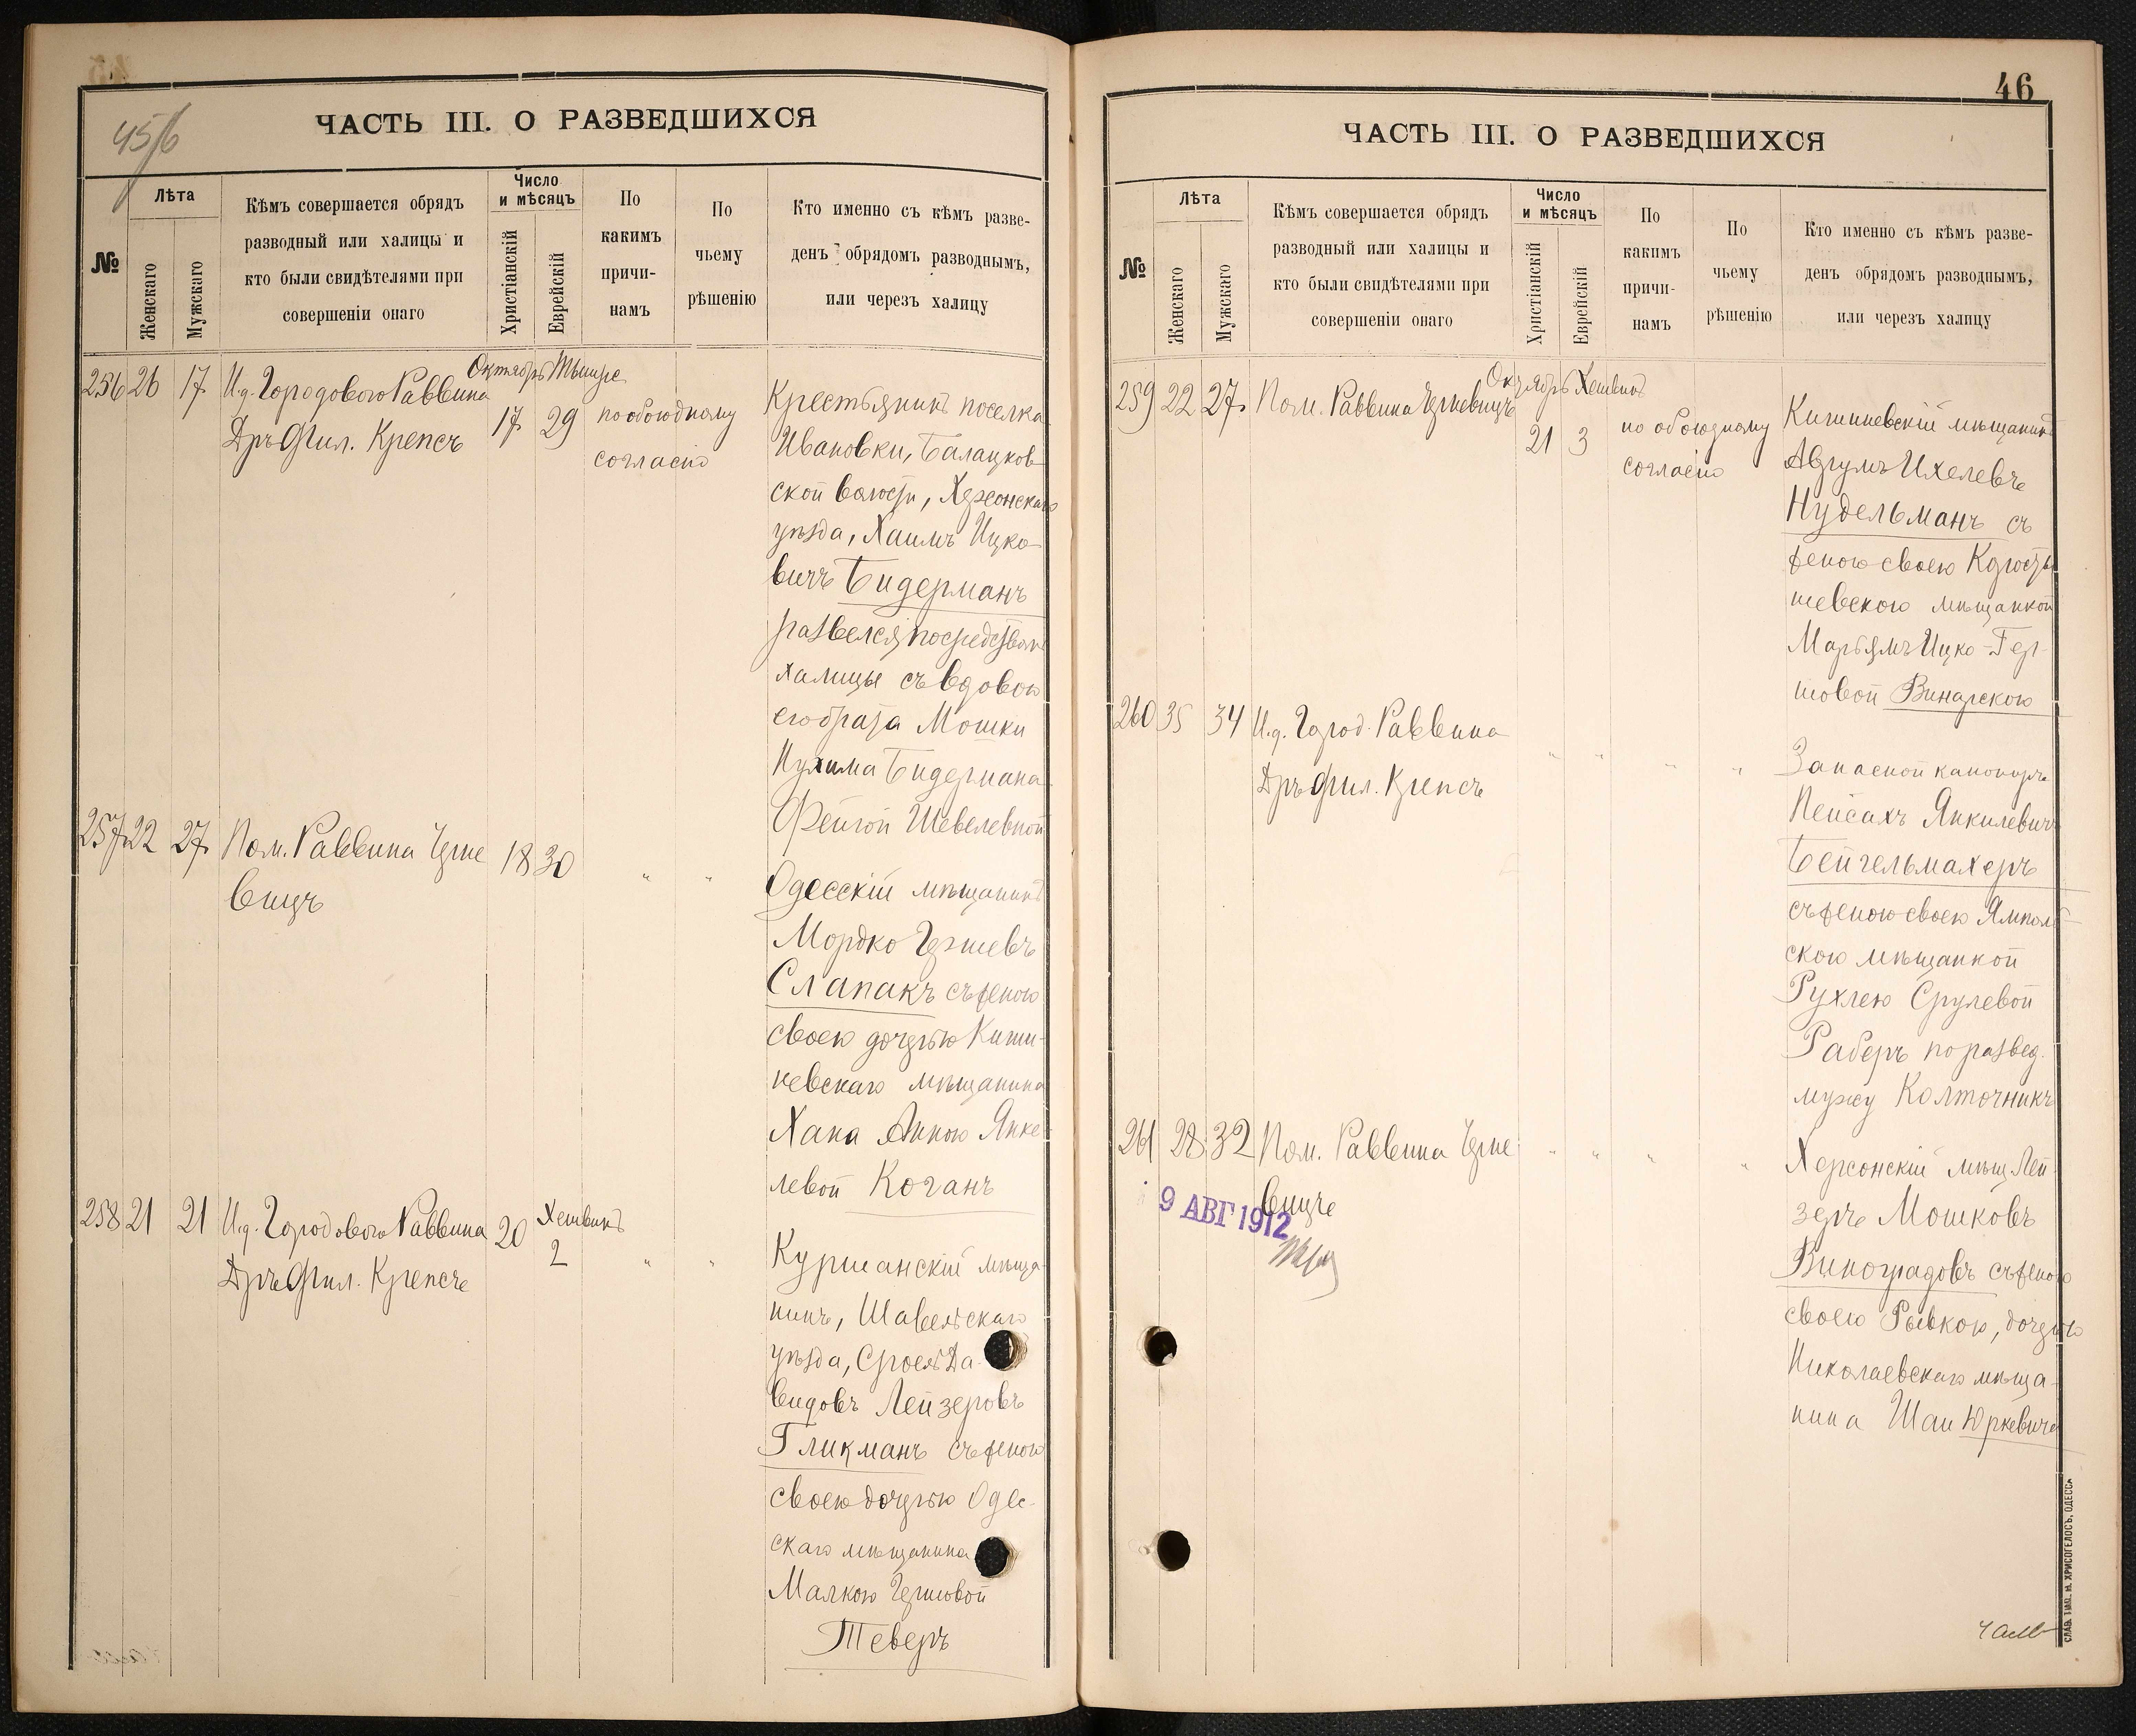 45/6
ЧАСТЬ III. О РАЗВЕДШИХСЯ
№
Лѣта
Женскаго
Мужскаго
Кѣмъ совершается обрядъ
разводный или халицы и
кто были свидѣтелями при
совершеніи онаго
Число
и мѣсяцъ
Христіанскій
Еврейскій
По
какимъ
причи-
намъ
По
чьему
рѣшенію
Кто именно съ кѣмъ разве-
денъ обрядомъ разводнымъ,
или черезъ халицу
256 26 17 И.д. Городового Раввина
Дръ Фил. Крепсъ
Октябрь Тишре
17 29
по обоюдному
согласію
Крестьянинъ поселка
Ивановки, Балацков-
ской волости, Херсонскаго
уѣзда, Хаимъ Ицко-
вичъ Бидерманъ
развелся посредствомъ
халицы съ вдовою
его брата Мошки
Нухима Бидермана
Фейгой Шевелевной
257 22 27 Пом. Раввина Черне
вицъ
18 30 " "
Одесскій мѣщанинъ
Мордко Гершевъ
Слапакъ съ женою
своею дочерью Киши-
невскаго мѣщанина
Хана Анною Янке-
левой Коганъ
258 21 21 И.д. Городового Раввина
Дръ Фил. Крепсъ
20 Хешванъ
2 " "
Куршанскій мѣща-
нинъ, Шавельскаго
уѣзда, Сроель Да-
видовъ Лейзеровъ
Гликманъ съ женою
своею дочерью Одес-
скаго мѣщанина
Малкою Гершовой
Теверъ
46
ЧАСТЬ III. О РАЗВЕДШИХСЯ
№
Лѣта
Женскаго
Мужскаго
Кѣмъ совершается обрядъ
разводный или халицы и
кто были свидѣтелями при
совершеніи онаго
Число
и мѣсяцъ
Христіанскій
Еврейскій
По
какимъ
причи-
намъ
По
чьему
рѣшенію
Кто именно съ кѣмъ разве-
денъ обрядомъ разводнымъ,
или черезъ халицу
259 22 27 Пом. Раввина Черневицъ
Октябрь Хешванъ
21 3
по обоюдному
согласію
Кишиневскій мѣщанинъ
Аврумъ Ихелевъ
Нудельманъ съ
женою своею
мѣщанкой
Марьямъ Ицко-Гер-
шовой Винарскою
260 35 34 И.д. Город. Раввина
Дръ Фил. Крепсъ
" " " "
Запасной канониръ
Пейсахъ Янкилевичъ
Бейгельмахеръ
съ женою своею Ямполь-
скою мѣщанкой
Рухлею Срулевой
Раберъ по развед.
мужу Колточникъ
261 28 32 Пом. Раввина Черне
вицъ
" " " "
Херсонскій мѣщ. Лей-
зеръ Мошковъ
Виноградовъ съ женою
своею Рывкою, дочерью
Николаевскаго мѣща-
нина Шаи Юркевича
9 АВГ 1912
СЛАВ. ТИП. Н. ХРИСОГЕЛОСЪ, ОДЕССА